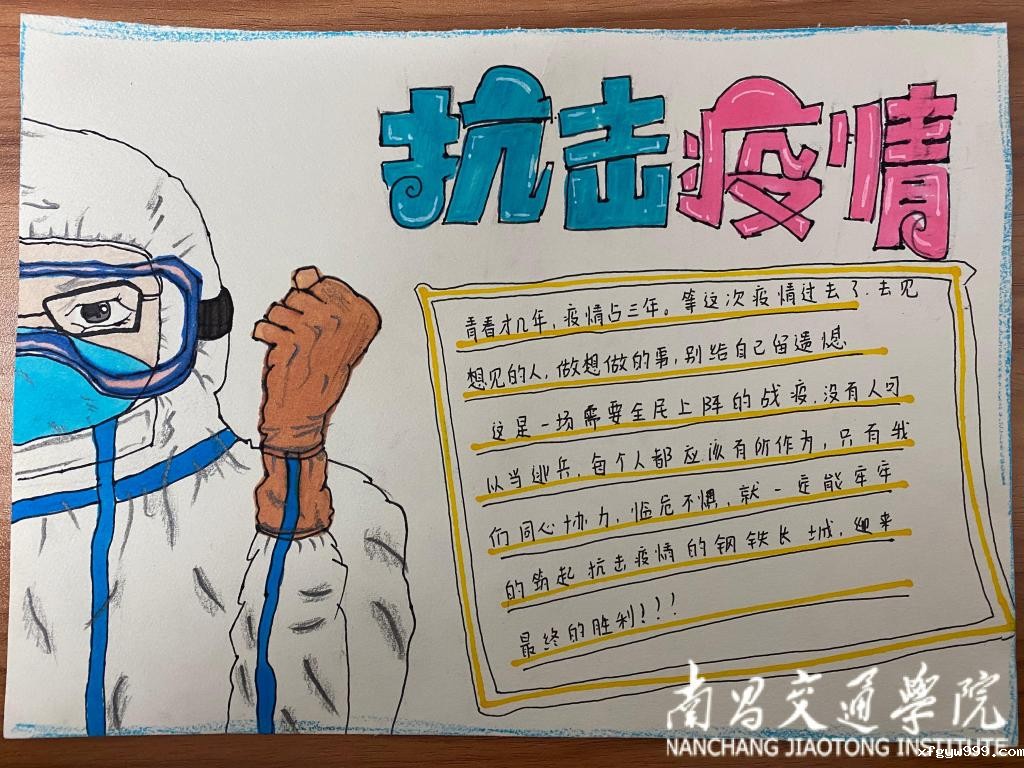 抗击疫情
青春才几年，疫情占三年。等这次疫情过去了.去见
想见的人，做想做的事，别给自己留遗憾
这是一场需要全民上阵的战疫.没有人可
以当逃兵，每个人都应该有所作为，只有我
们同心协力，临危不惧，就一定能牢牢
的筑起抗击疫情的钢铁长城，迎来
最终的胜利！！！
南昌交通學院
NANCHANG JIAOTONG INSTITUTE
xfgyw999.com